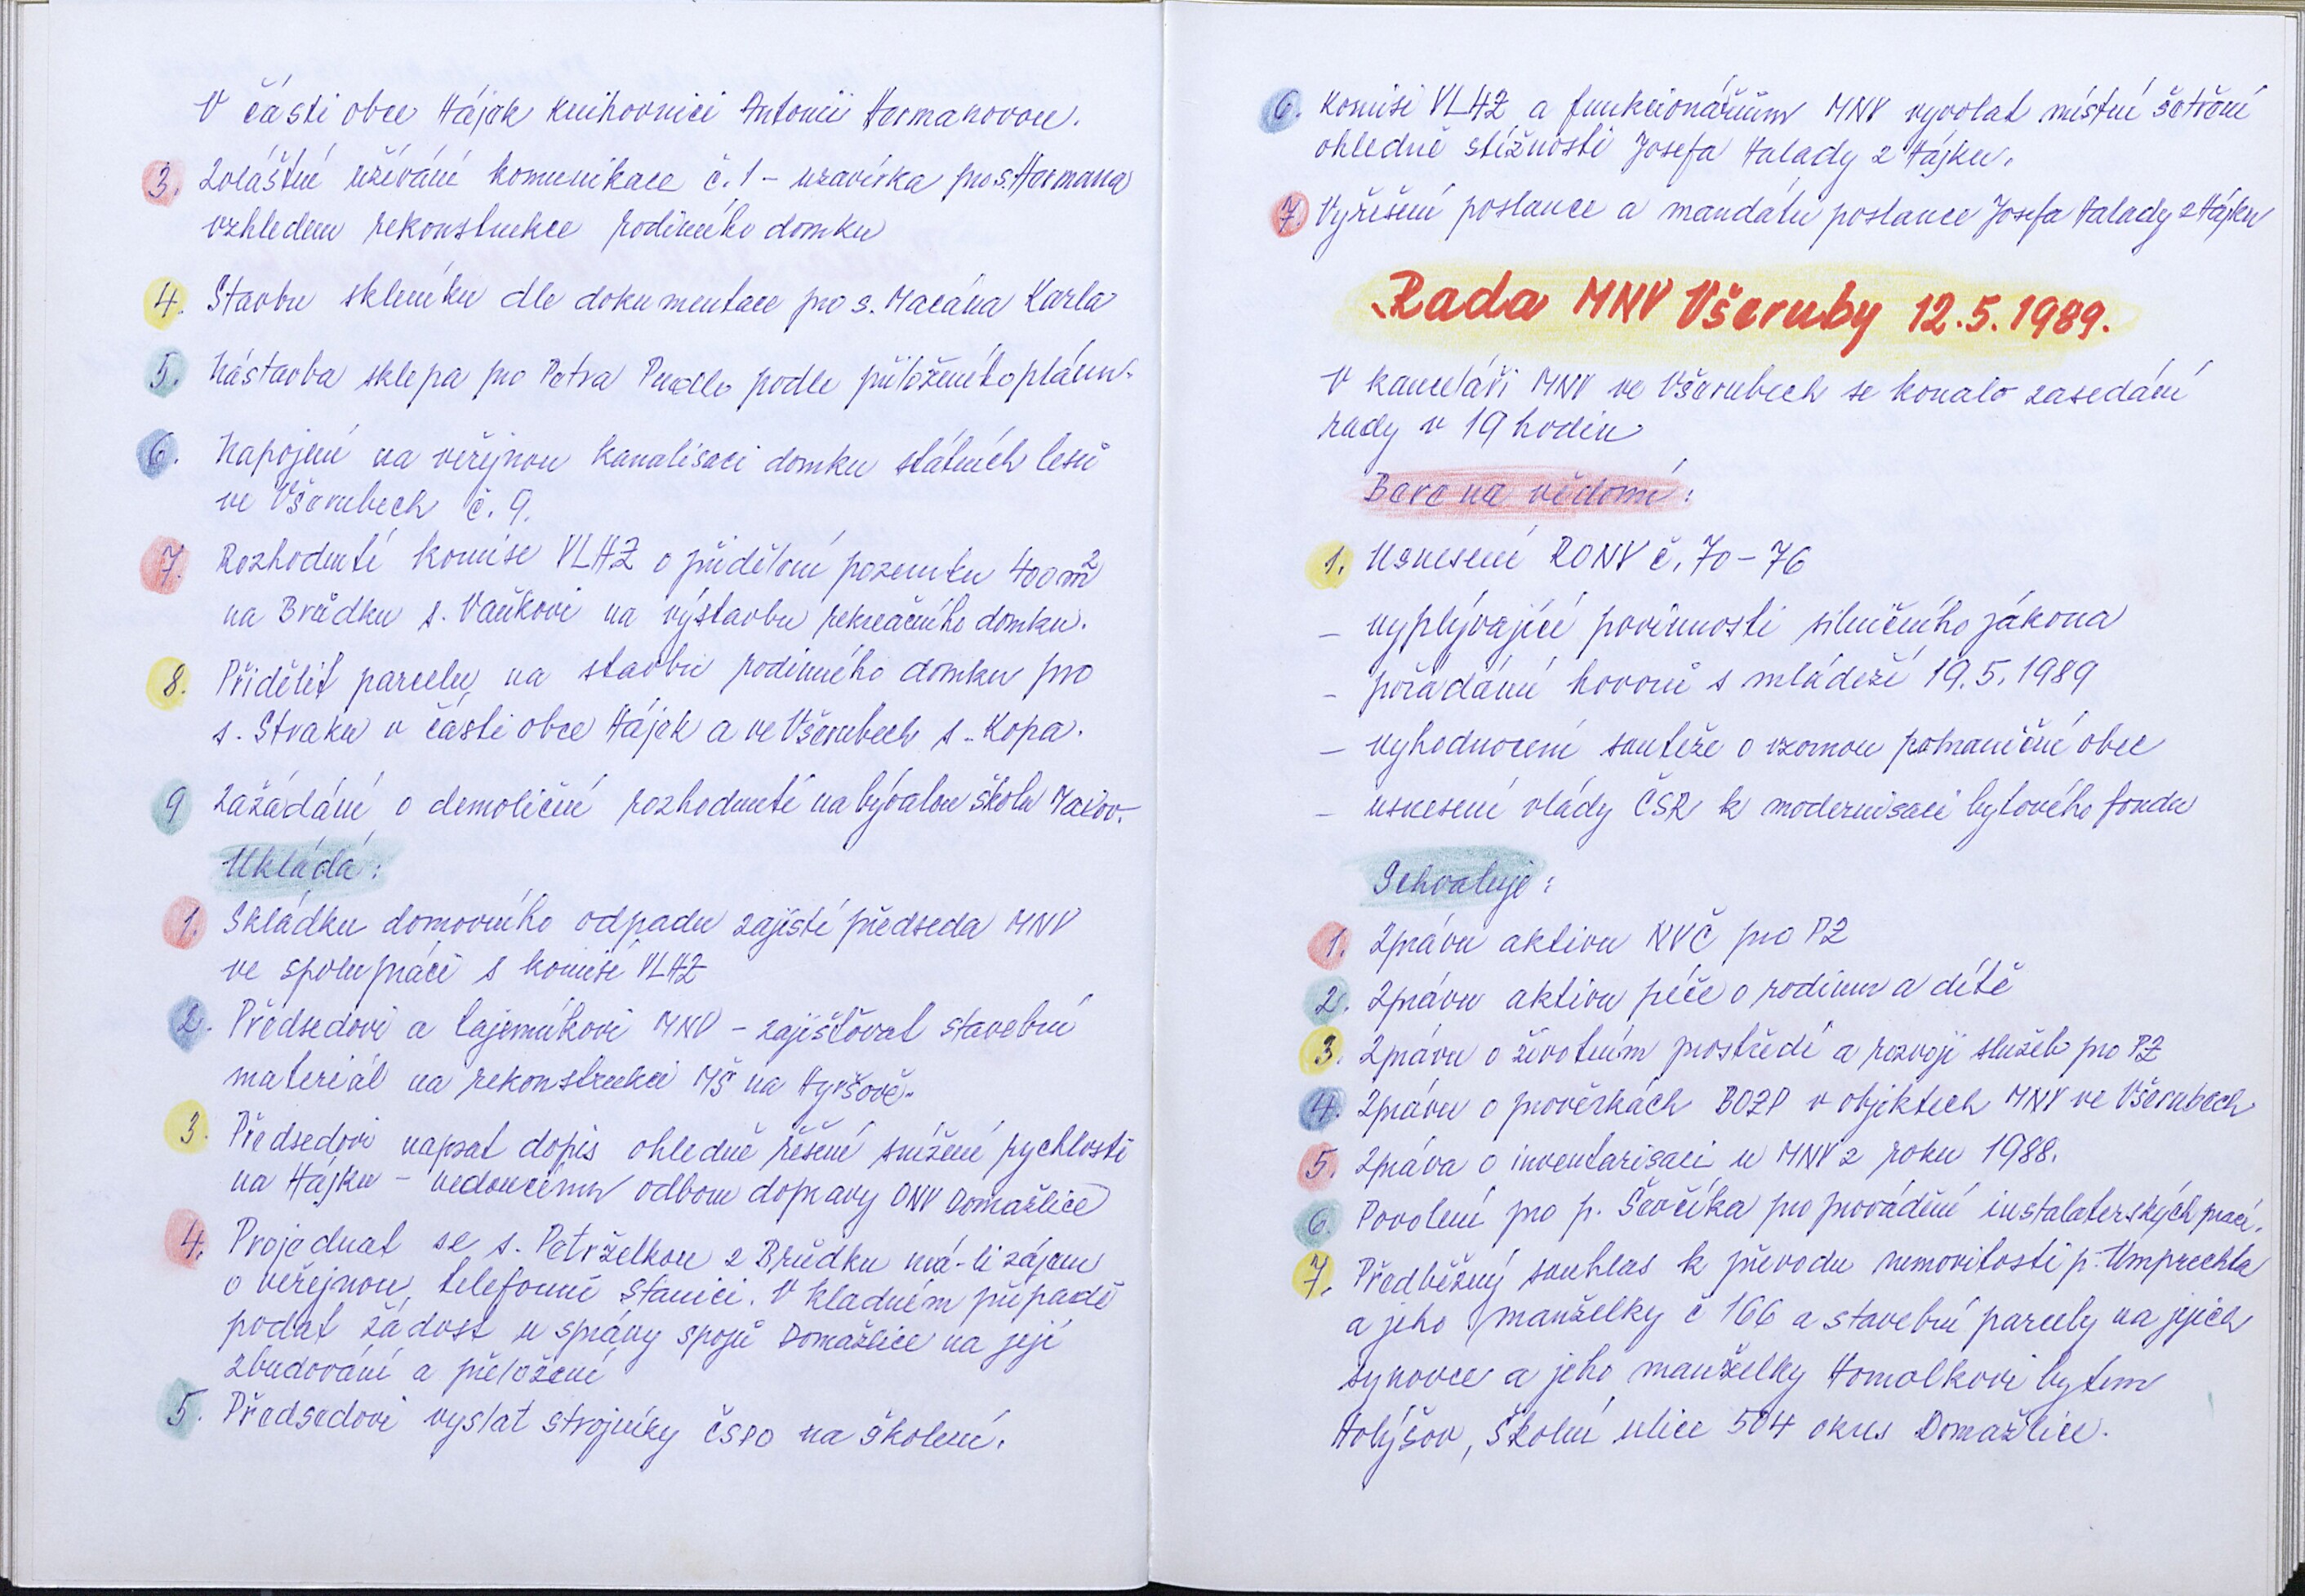 V části obce Hájek knihovnici Antonii Hermanovou.
3. Zvláštní užívání komunikace č. 1 - uzavírka pro s. Hermana
vzhledem rekonstrukce rodinného domku
4. Stavbu skleníku dle dokumentace pro s. Macána Karla
5. Nástavba sklepa pro Petra Pudla podle přiloženého plánu.
6. Napojení na veřejnou kanalisaci domku státních lesů
ve Všerubech č. 9.
7. Rozhodnutí komise VLHZ o přidělení pozemku 400 m²
na Brůdku s. Vaňkovi na výstavbu rekreačního domku.
8. Přidělit parcelu na stavbu rodinného domku pro
s. Straku v části obce Hájek a ve Všerubech s. Kopa.
9 Zažádání o demoliční rozhodnutí na bývalou školu Maxov.
Ukládá:
1. Skládku domovního odpadu zajistí předseda MNV
ve spolupráci s komisí VLHZ
2. Předsedovi a tajemníkovi MNV - zajišťovat stavební
materiál na rekonstrukci MŠ na Hyršově.
3. Předsedovi napsat dopis ohledně řešení snížení rychlosti
na Hájku - vedoucímu odboru dopravy ONV Domažlice
4. Projednat se s. Petrželkou z Brůdku má-li zájem
o veřejnou telefonní stanici. V kladném případě
podat žádost u správy spojů Domažlice na její
zbudování a přeložení
5. Předsedovi vyslat strojníky ČSPO na školení.
6. Komisi VLHZ a funkcionářům MNV vyvolat místní šetření
ohledně stížnosti Josefa Halady z Hájku.
7. Vyřešení poslance a mandátu poslance Josefa Halady z Hájku
Rada MNV Všeruby 12.5.1989.
V kanceláři MNV ve Všerubech se konalo zasedání
rady v 19 hodin
Bere na vědomí:
1. Usnesení RONV č. 70-76
- vyplývající povinnosti silničního zákona
- pořádání hovorů s mládeží 19.5.1989
- vyhodnocení soutěže o vzornou pohraniční obec
- usnesení vlády ČSR k modernisaci bytového fondu
Schvaluje:
1. Zprávu aktivu NVČ pro PZ
2. Zprávu aktivu péče o rodinu a dítě
3. Zprávu o životním prostředí a rozvoji služeb pro PZ
4. Zprávu o prověrkách BOZP v objektech MNV ve Všerubech
5. Zpráva o inventarisaci u MNV z roku 1988.
6. Povolení pro p. Ševčíka pro provádění instalaterských prací.
7. Předběžný souhlas k převodu nemovitosti p. Umprechta
a jeho manželky č 166 a stavební parcely na jejich
synovce a jeho manželky Homolkovi bytem
Holýšov, Školní ulice 504 okres Domažlice.